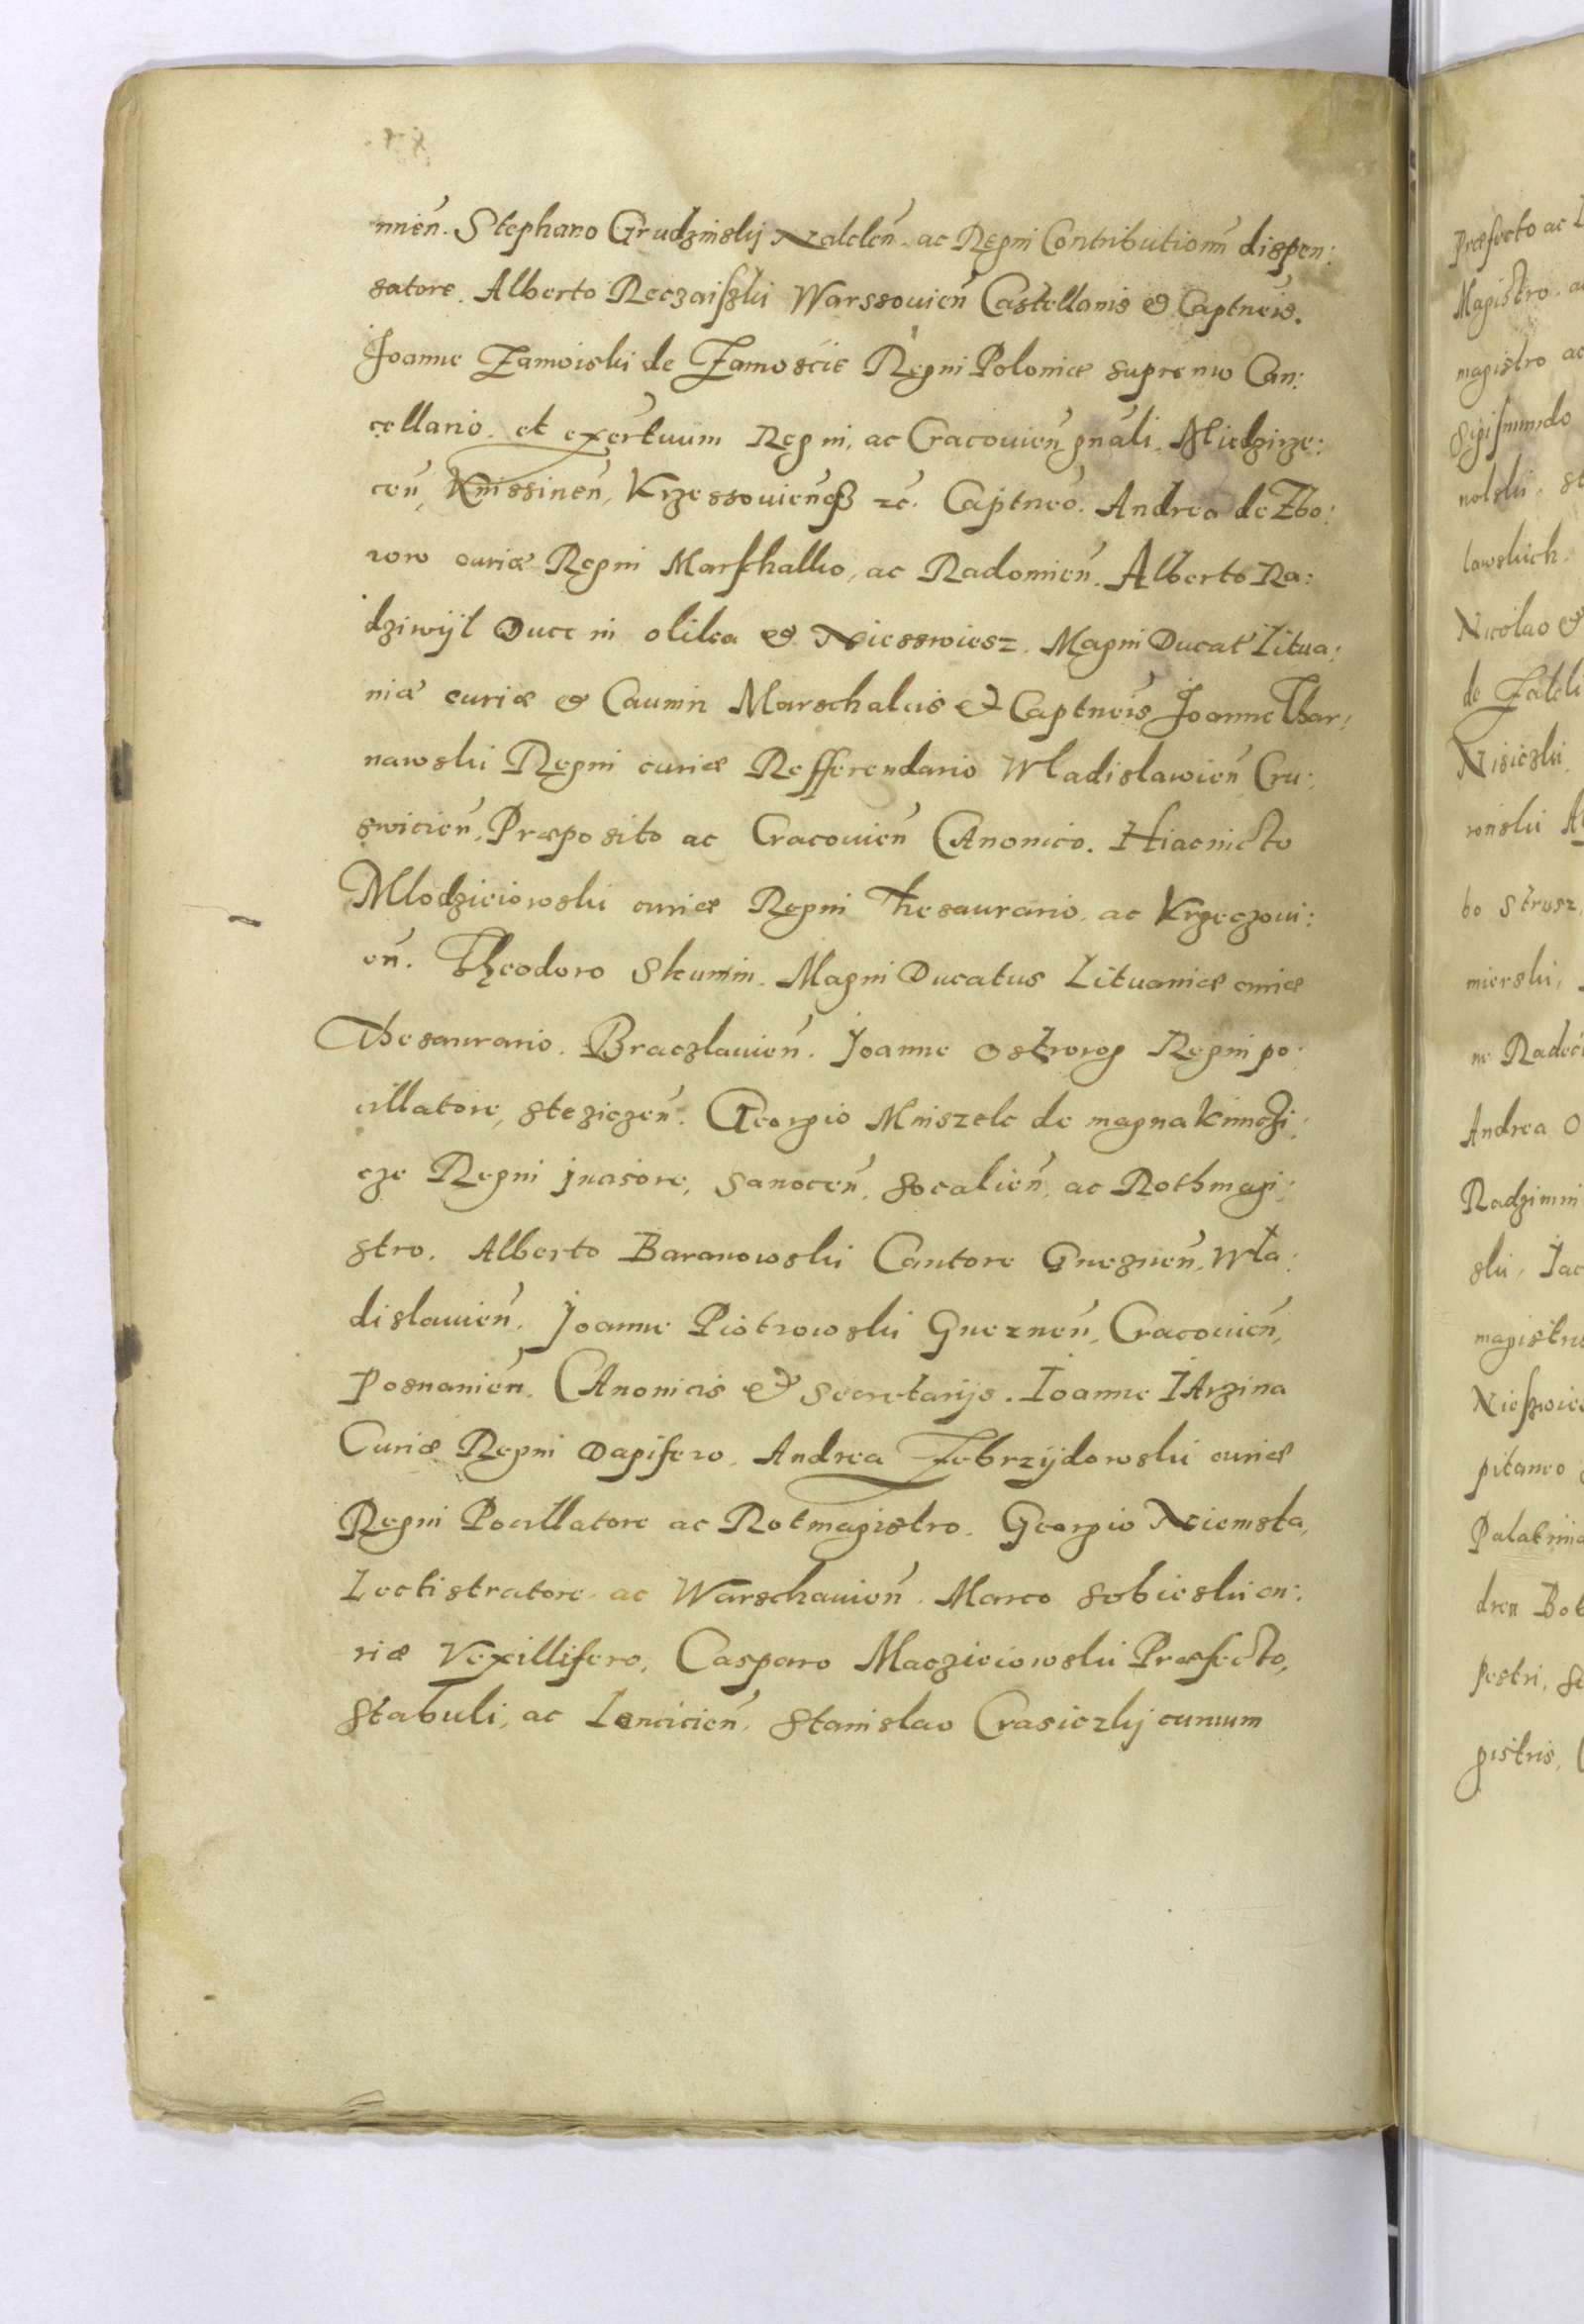 mień. Stephano Grudzinskij Nakleń. ac Regni Contributionū dispen:
satore. Alberto Reczaiſzki Warssouień Castellanis & Captneis.
Joanne Zamoiski de Zamoście Regni Poloniæ supremo Can:
cellario. et exertuum Regni, ac Cracouień gnāli, Miedzirze:
ceń, Knissineń, Krzessouieńq zc. Captneo. Andrea de Zbo:
row curiæ Regni Marſchallco, ac Radomień. Alberto Ra:
dziwijł Duce in olika & Niesswiesz. Magni Ducat' Litua:
niæ curiæ & Caunin Marschalcis & Captneis Joanne Thar:
nawski Regni curiæ Refferendario Wladislawień Cru:
swicień, Præposito ac Cracouień CAnonico. Hiacincto
Mlodzieiowski curiæ Regni Thesaurario. ac Krzeczoui:
eń. Theodoro Skumin. Magni Ducatus Lituaniæ curiæ
Thesaurario. Braczlauień. Joanne Ostrorog Regni po:
cillatore, steziczeń. Georgio Mniszek de magna Kunczi:
cze Regni jncisore, sanoceń, socalień, ac Rothmagi:
stro. Alberto Baranowski Cantore Gnezneń, Wła:
dislauień. Joanne Piotrowski Gnezneń, Cracouień,
Posnanień. CAnonicis & Secretarijs. Ioanne IArzina
Curiæ Regni Dapifero, Andrea Zebrzijdowski curiæ
Regni Pocillatore ac Rotmagistro. Georgio Niemsta,
Lectistratore ac Warschauień. Marco Sobieski cu:
riæ Vexillifero, Casparo Maczieiowski Præfecto,
Stabuli, ac Lencicień, Stanislao Crasiczkij curruum
Præfecto ac
Magistro. a
magistro ac
Sigiſmundo
nolski. st
lawskich.
Nicolao &
de Zakli
Nisiczki,
ronski A
bo Strusz,
mierski,
ne Radec
Andrea O
Radzimni
ski, Iac
magistro
Nieſzwie
pitaneo
Palatin
drea Bo
pestri, Se
gistris,